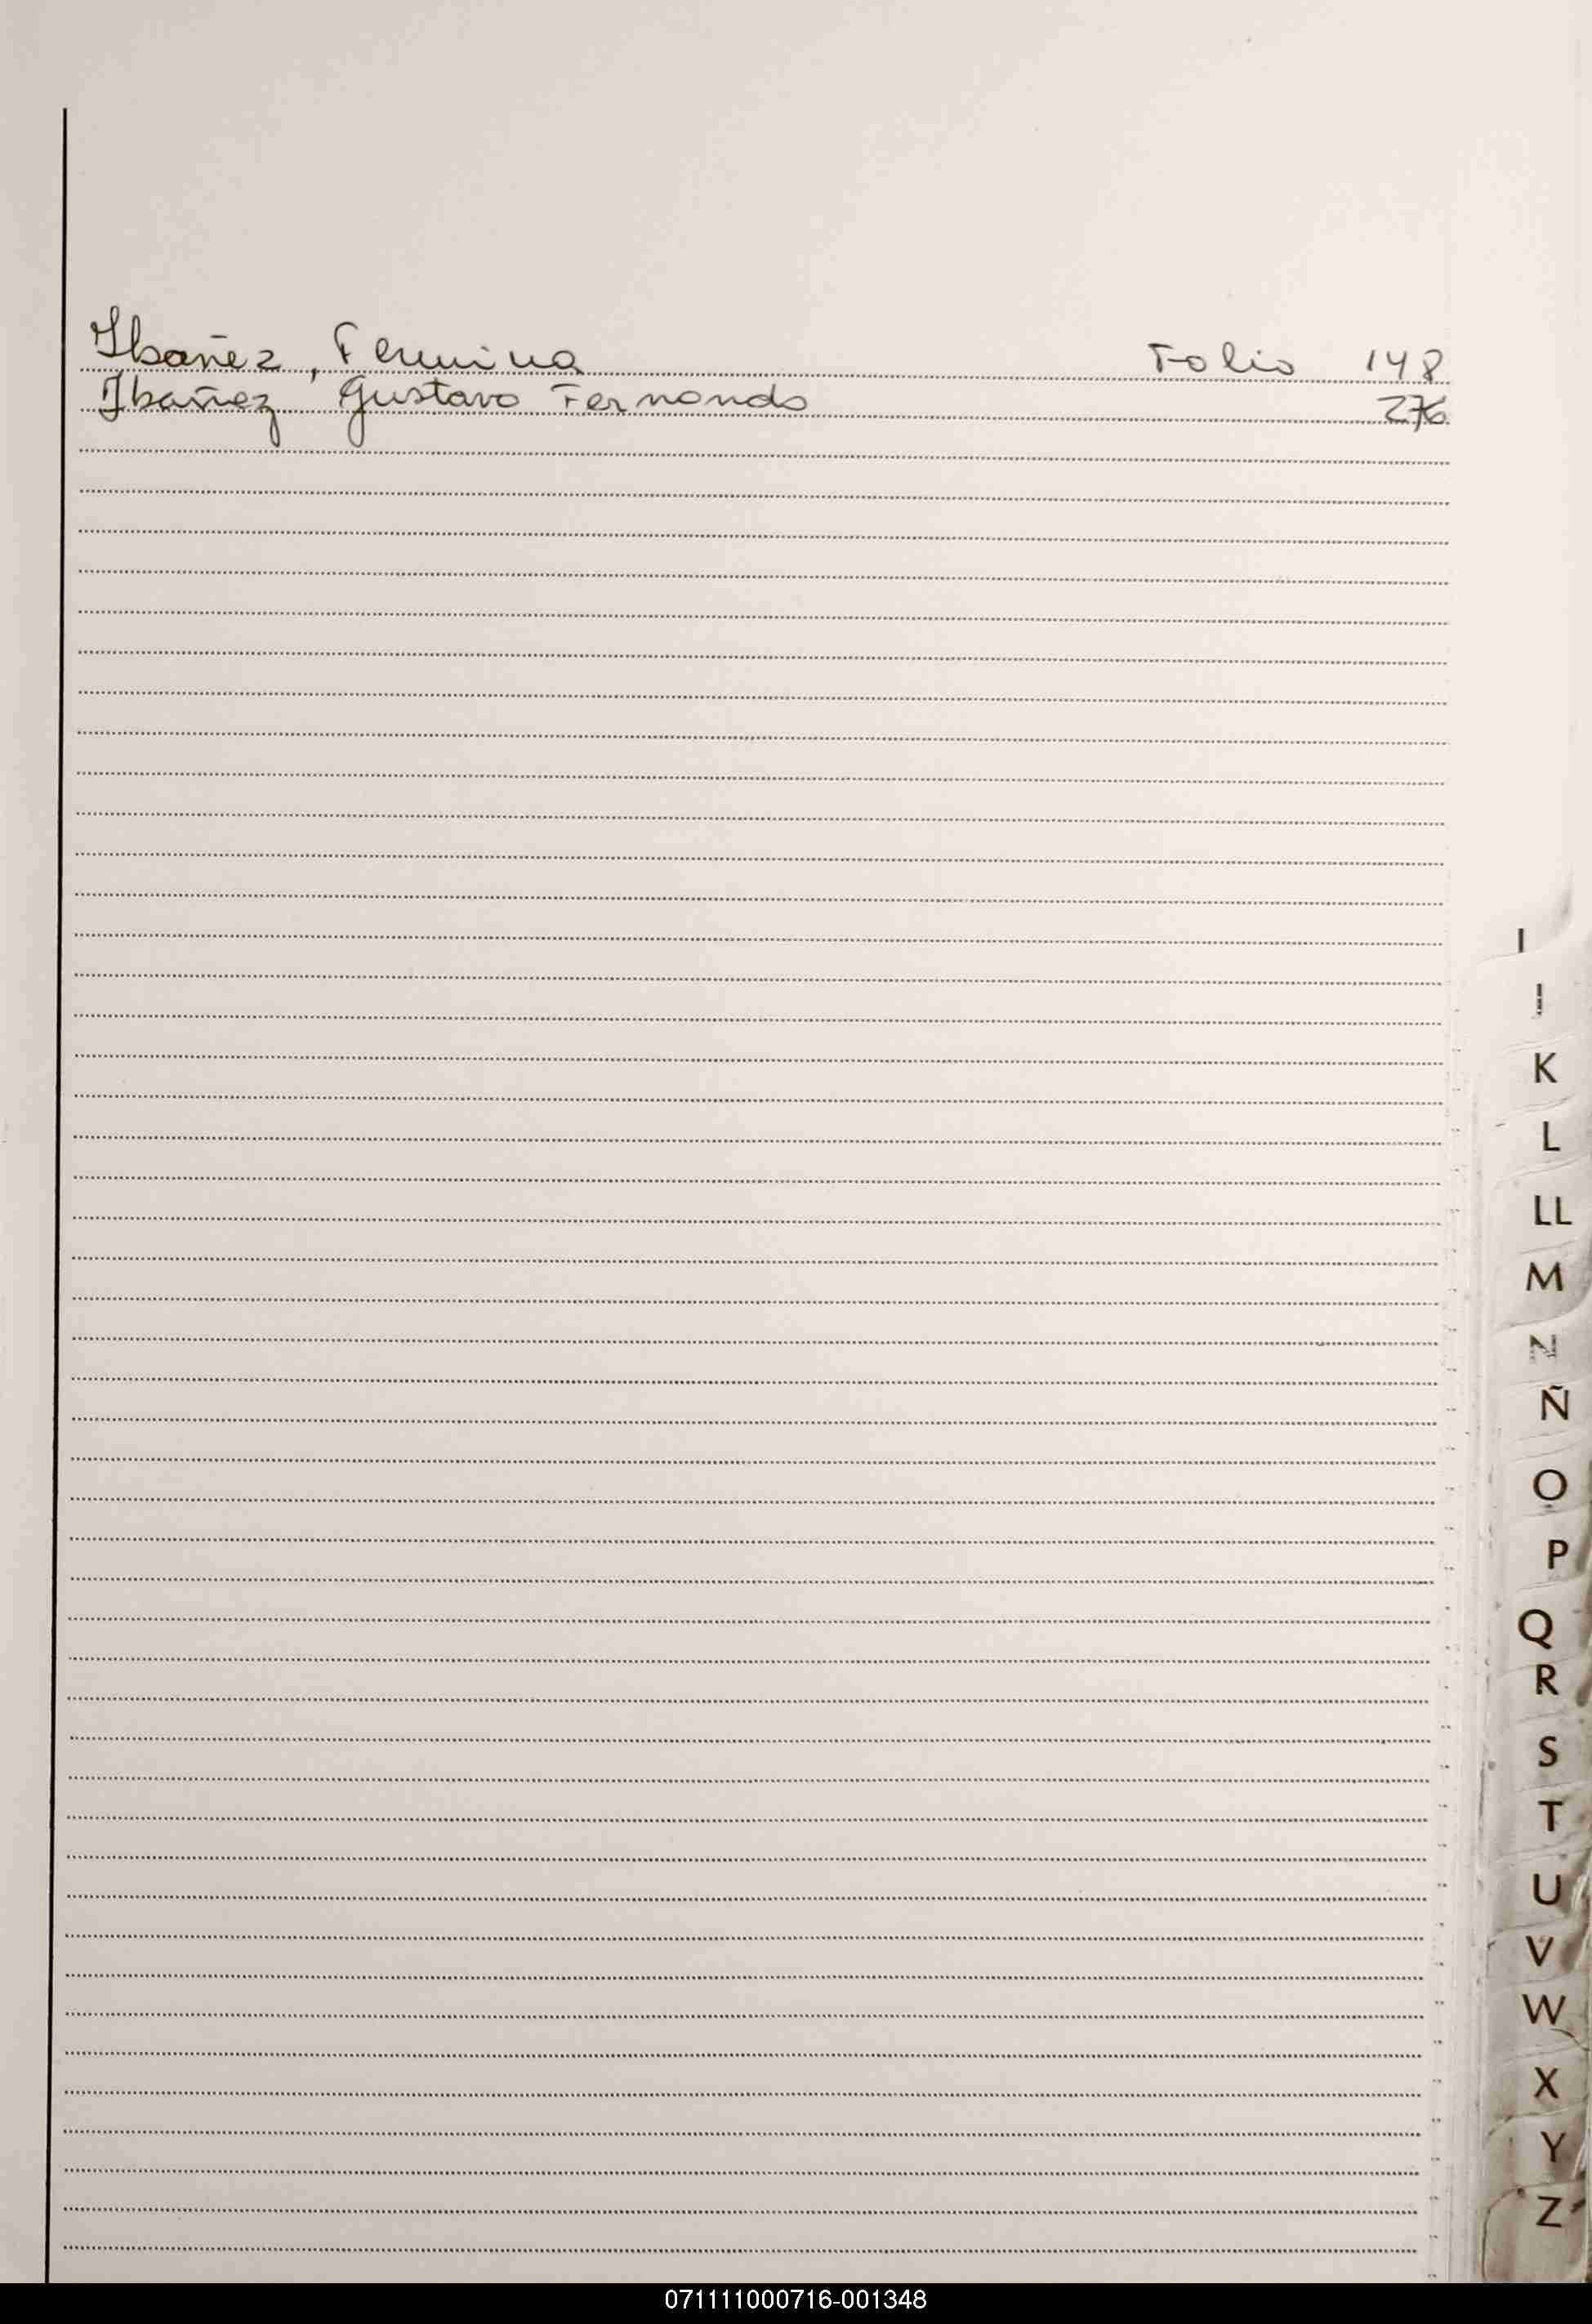 Ibañez, Fermina Folio 148
Ibañez, Gustavo Fernando 276
I
J
K
L
LL
M
N
Ñ
O
P
Q
R
S
T
U
V
W
X
Y
Z
071111000716-001348